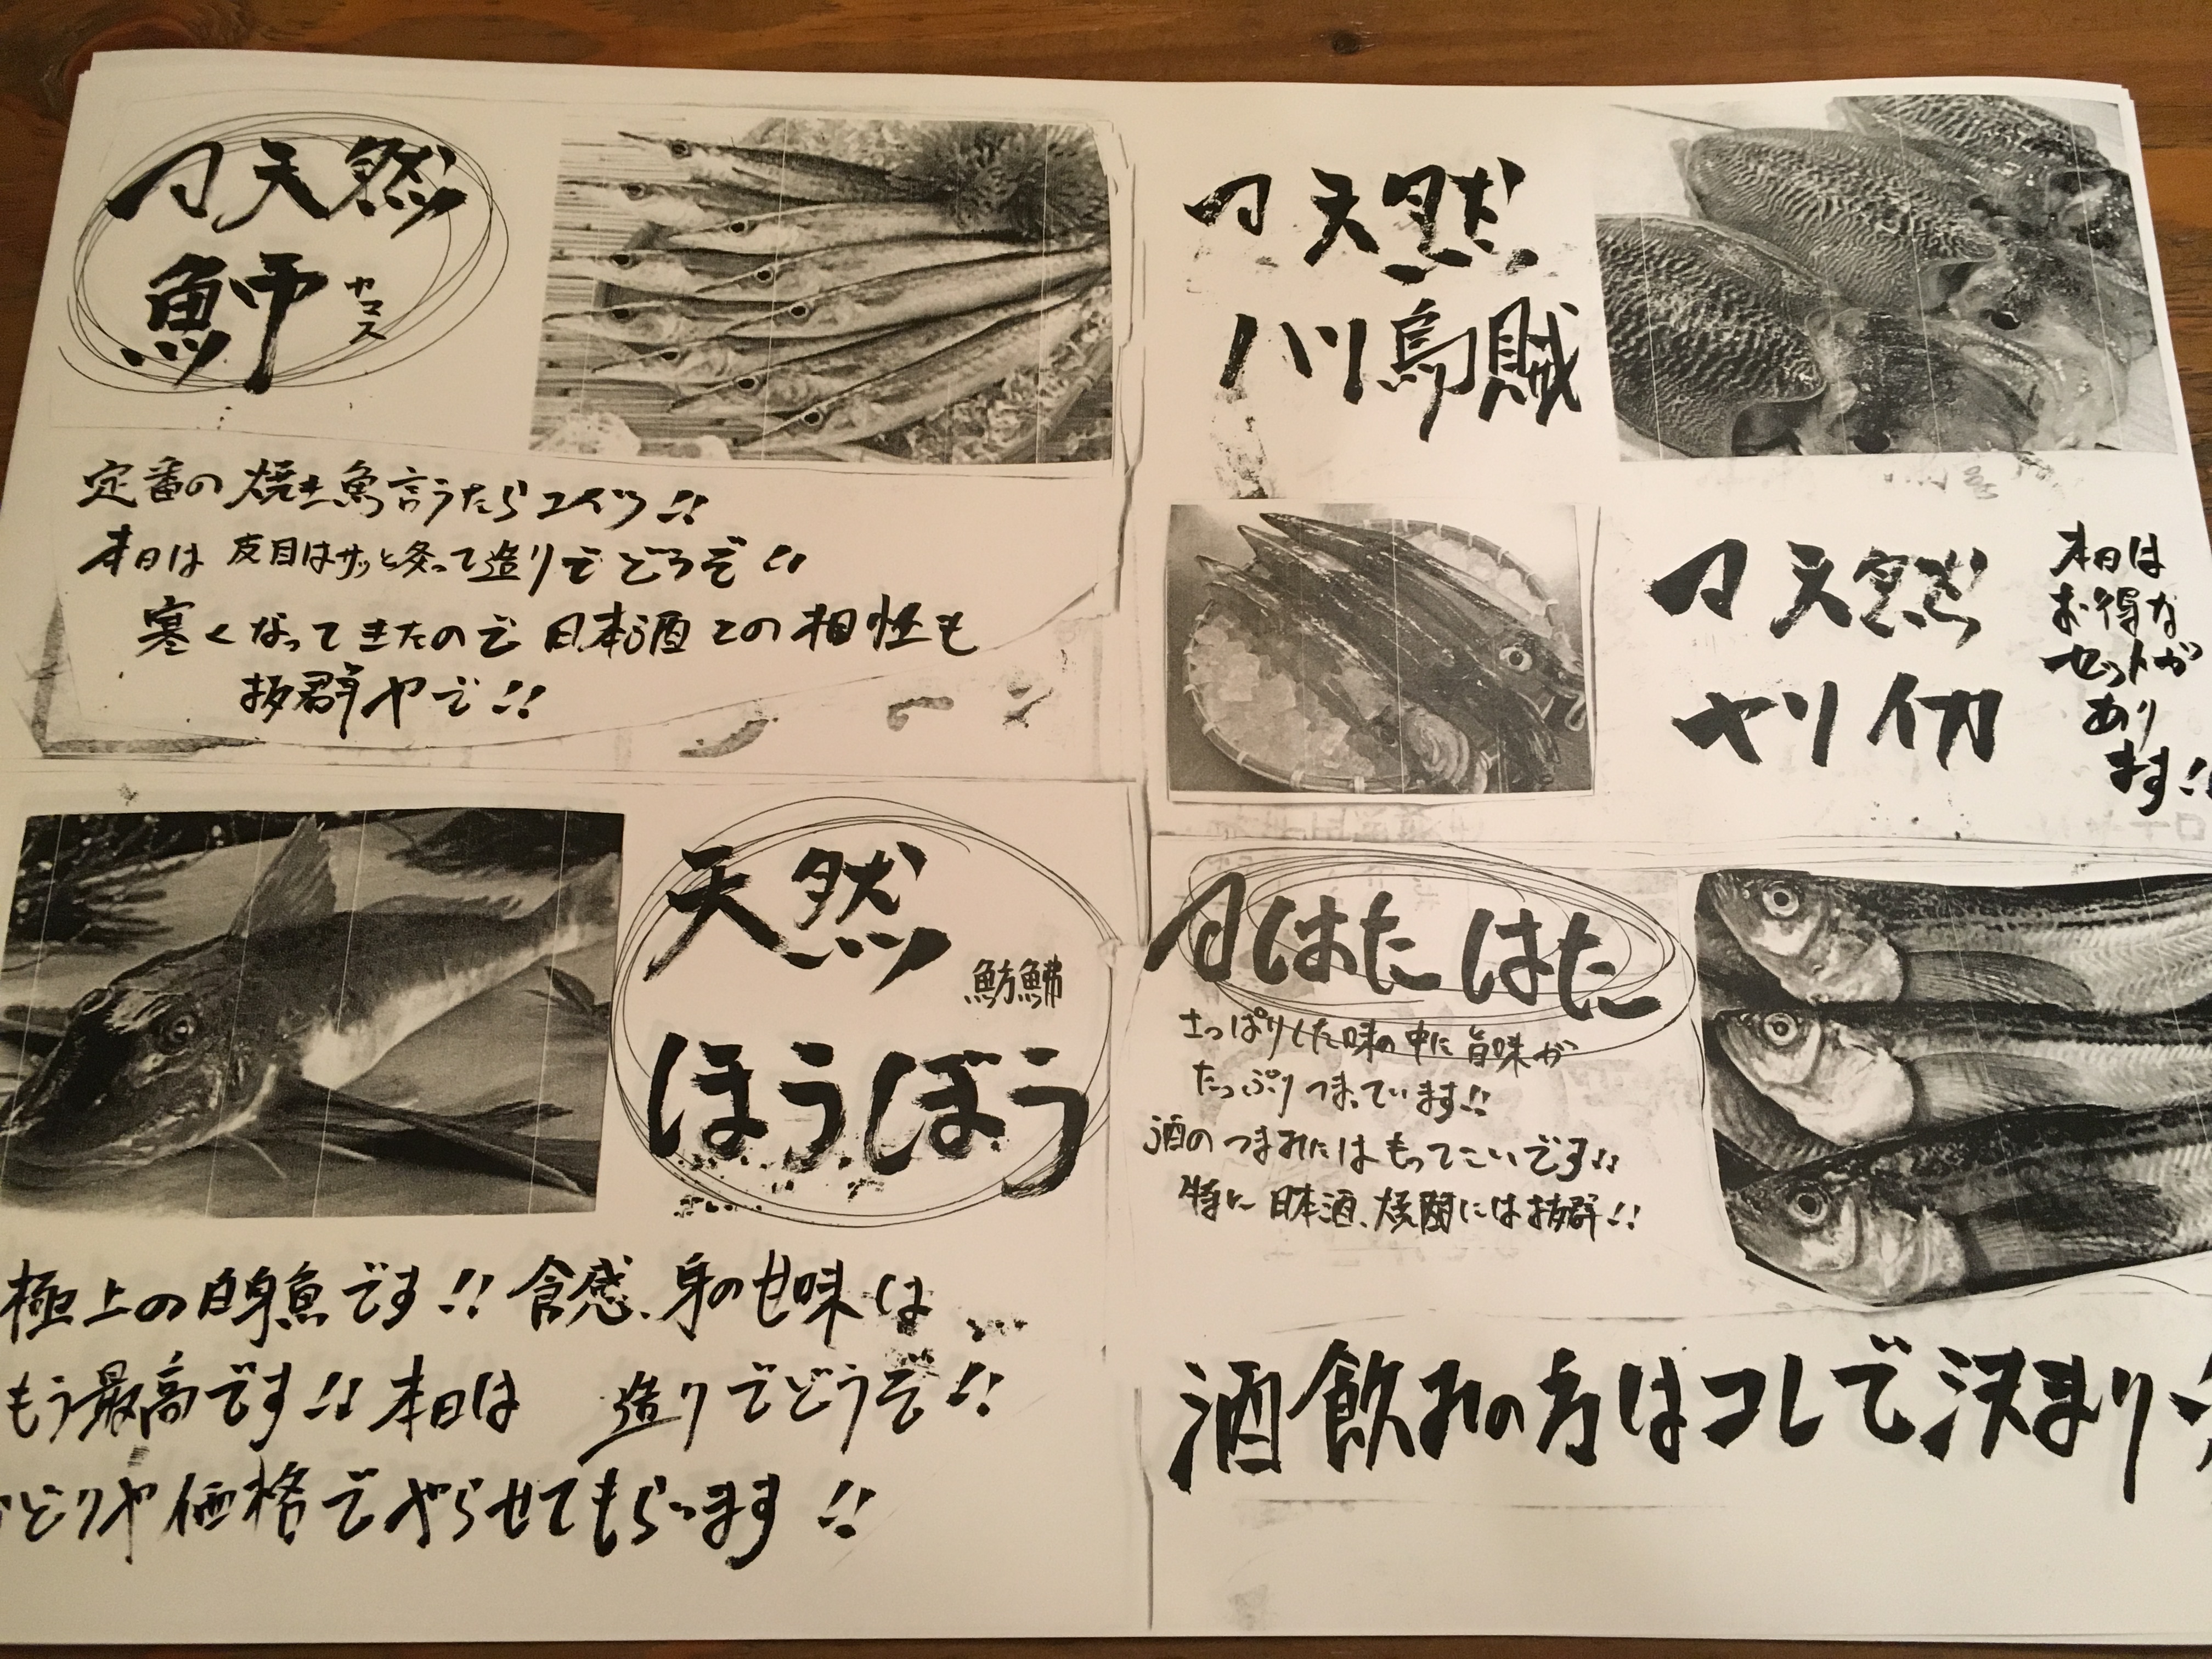 天然
魳 カマス
定番の焼き魚言うたらコイツ!!
本日は皮目はサッと炙って造りでどうぞ!!
寒くなってきたので日本酒との相性も
抜群やで!!
天然
魴鮄
ほうぼう
極上の白身魚です!!食感、身の甘味は
もう最高です!!本日は 造りでどうぞ!!
どりや価格でやらせてもらいます!!
天然
ハリ烏賊
天然
ヤリイカ
本日は
お得な
セットが
あり
ます!!
はたはた
さっぱりした味の中に旨味が
たっぷりつまっています!!
酒のつまみにはもってこいです!!
特に日本酒、焼酎には抜群!!
酒飲みの方はコレで決まり